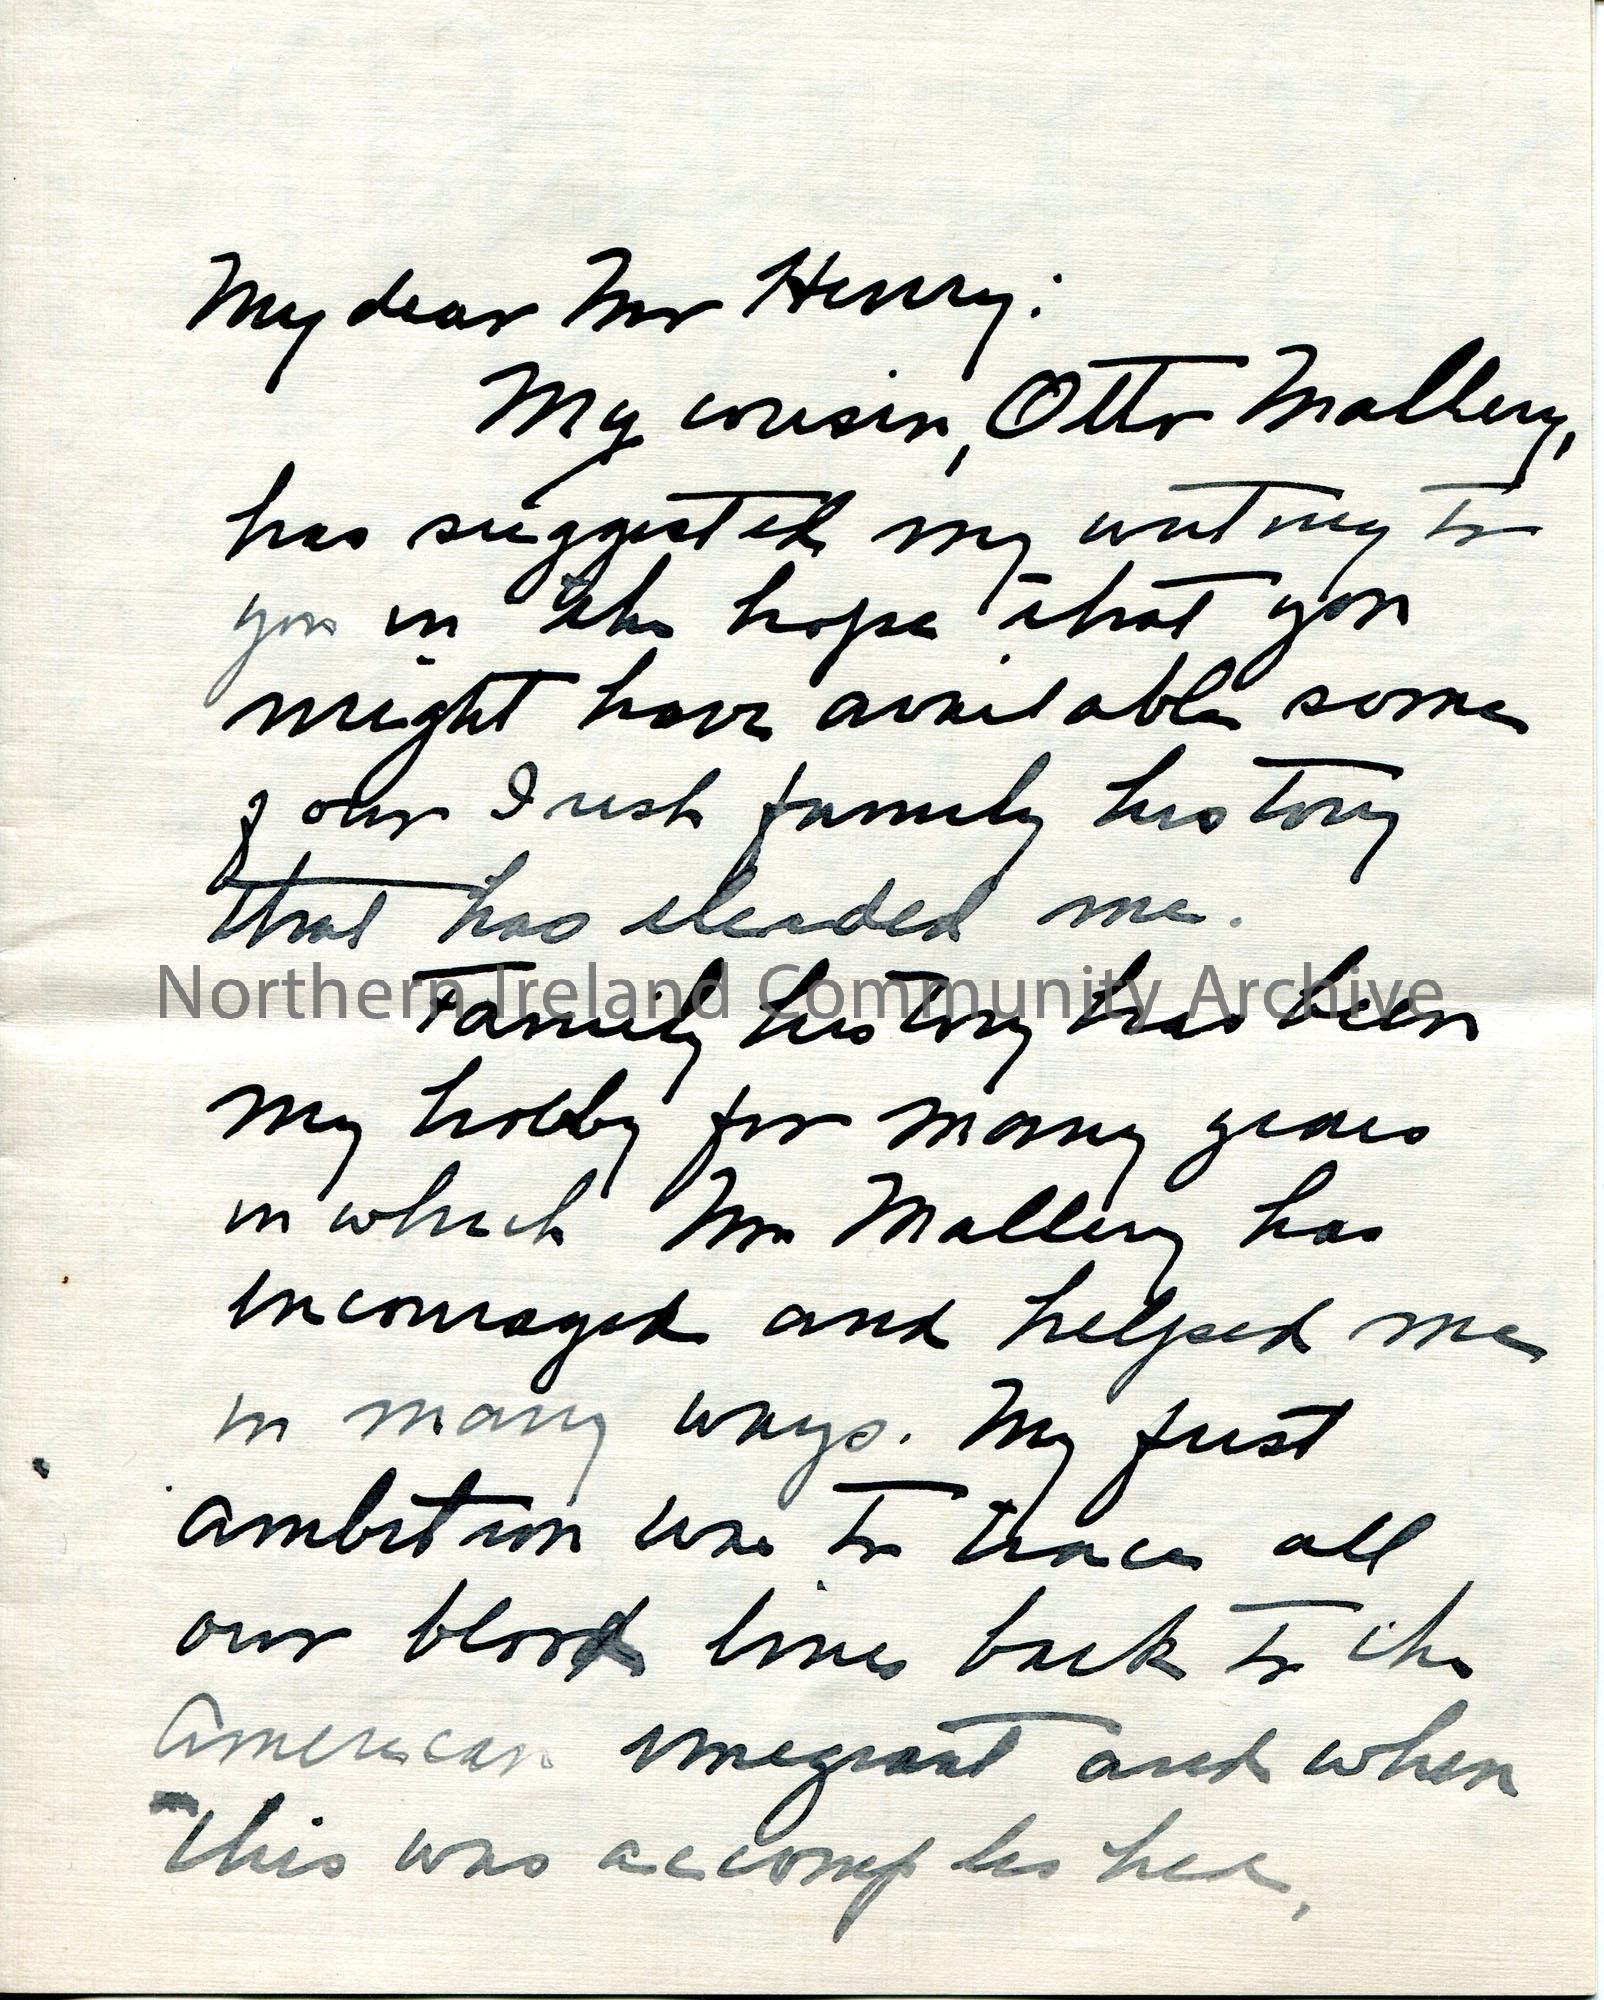 My dear Mr Henry:
My cousin, Otto Mallery,
has suggested my writing to
you in the hope that you
might have available some
of our Irish family history
that has eluded me.
Northern Ireland Community Archive
Family history has been
my hobby for many years
in which Mr Mallery has
encouraged and helped me
in many ways. My first
ambition was to trace all
our blood lines back to the
American emigrant and when
this was accomplished,